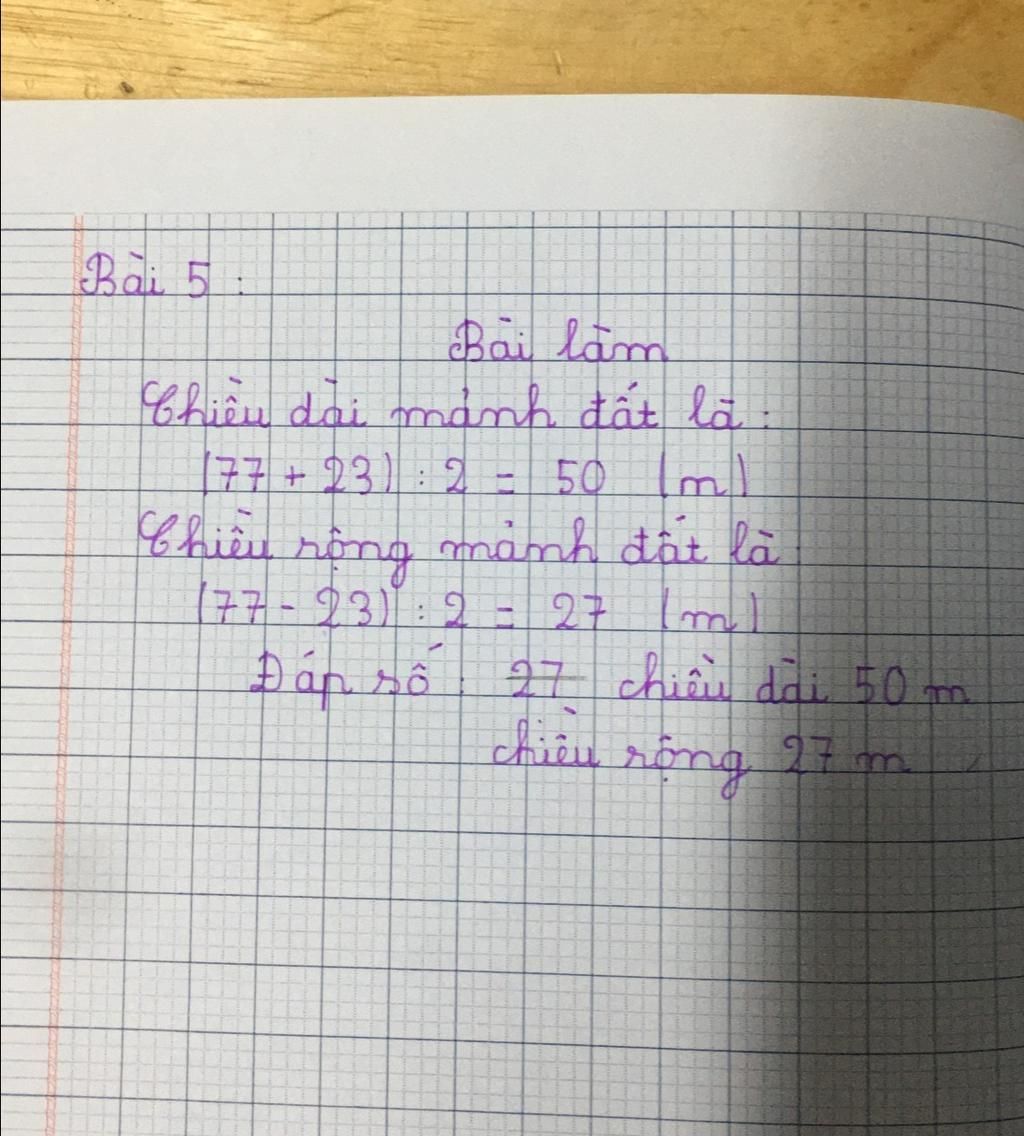 Bài 5 :
Bài làm
Chiều dài mảnh đất là :
(77 + 23) : 2 = 50 (m)
Chiều rộng mảnh đất là
(77 - 23) : 2 = 27 (m)
Đáp số : 27 chiều dài 50 m
chiều rộng 27 m